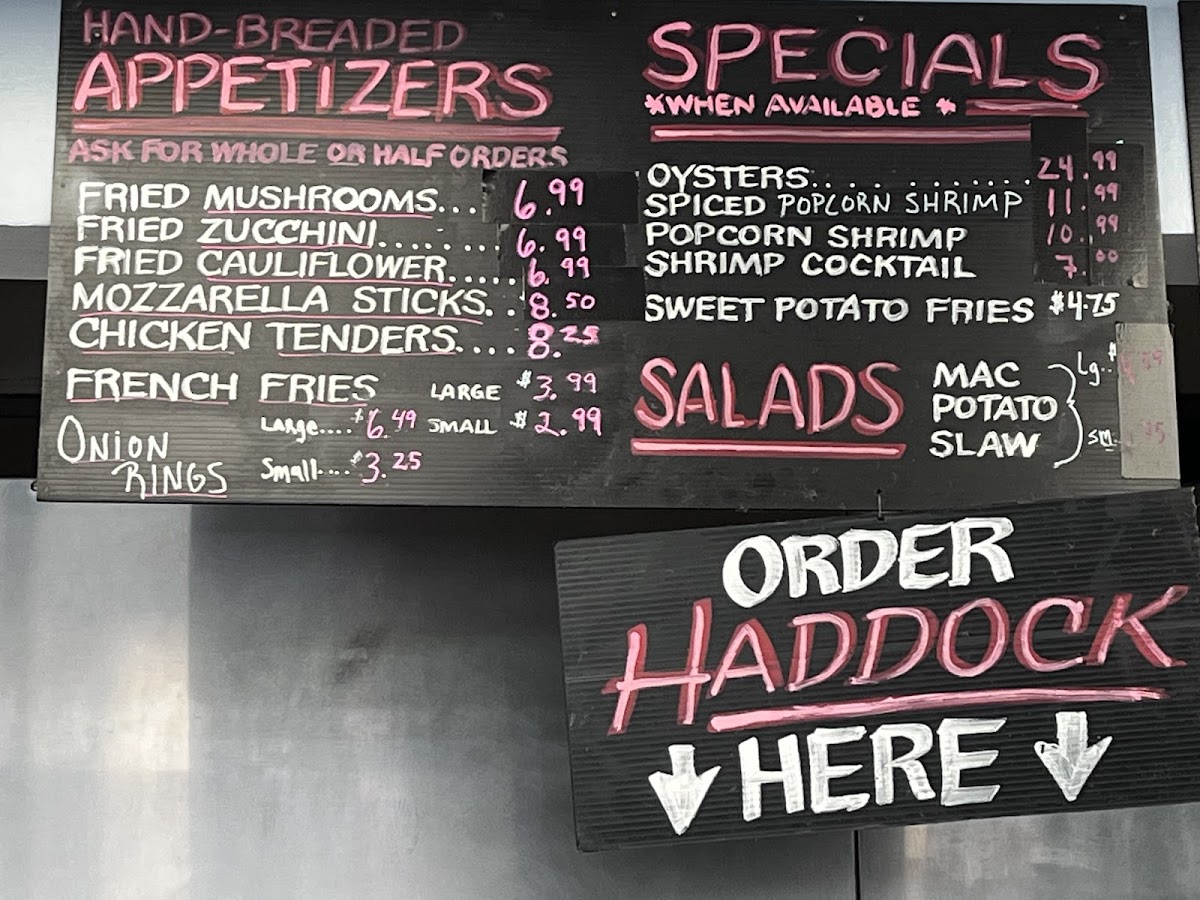 HAND-BREADED
APPETIZERS
ASK FOR WHOLE OR HALF ORDERS
FRIED MUSHROOMS... 6.99
FRIED ZUCCHINI....... 6.99
FRIED CAULIFLOWER..... 6.99
MOZZARELLA STICKS.. 8.50
CHICKEN TENDERS.... 8.25
FRENCH FRIES LARGE $3.99
SMALL $2.99
ONION RINGS
Large.... $6.49
Small.... $3.25
SPECIALS
*WHEN AVAILABLE *
OYSTERS.. . . ........ 24.99
SPICED POPCORN SHRIMP 11.99
POPCORN SHRIMP 10.99
SHRIMP COCKTAIL 7.00
SWEET POTATO FRIES $4.75
SALADS
MAC
POTATO
SLAW
Lg.. $
sm..
ORDER
HADDOCK
HERE